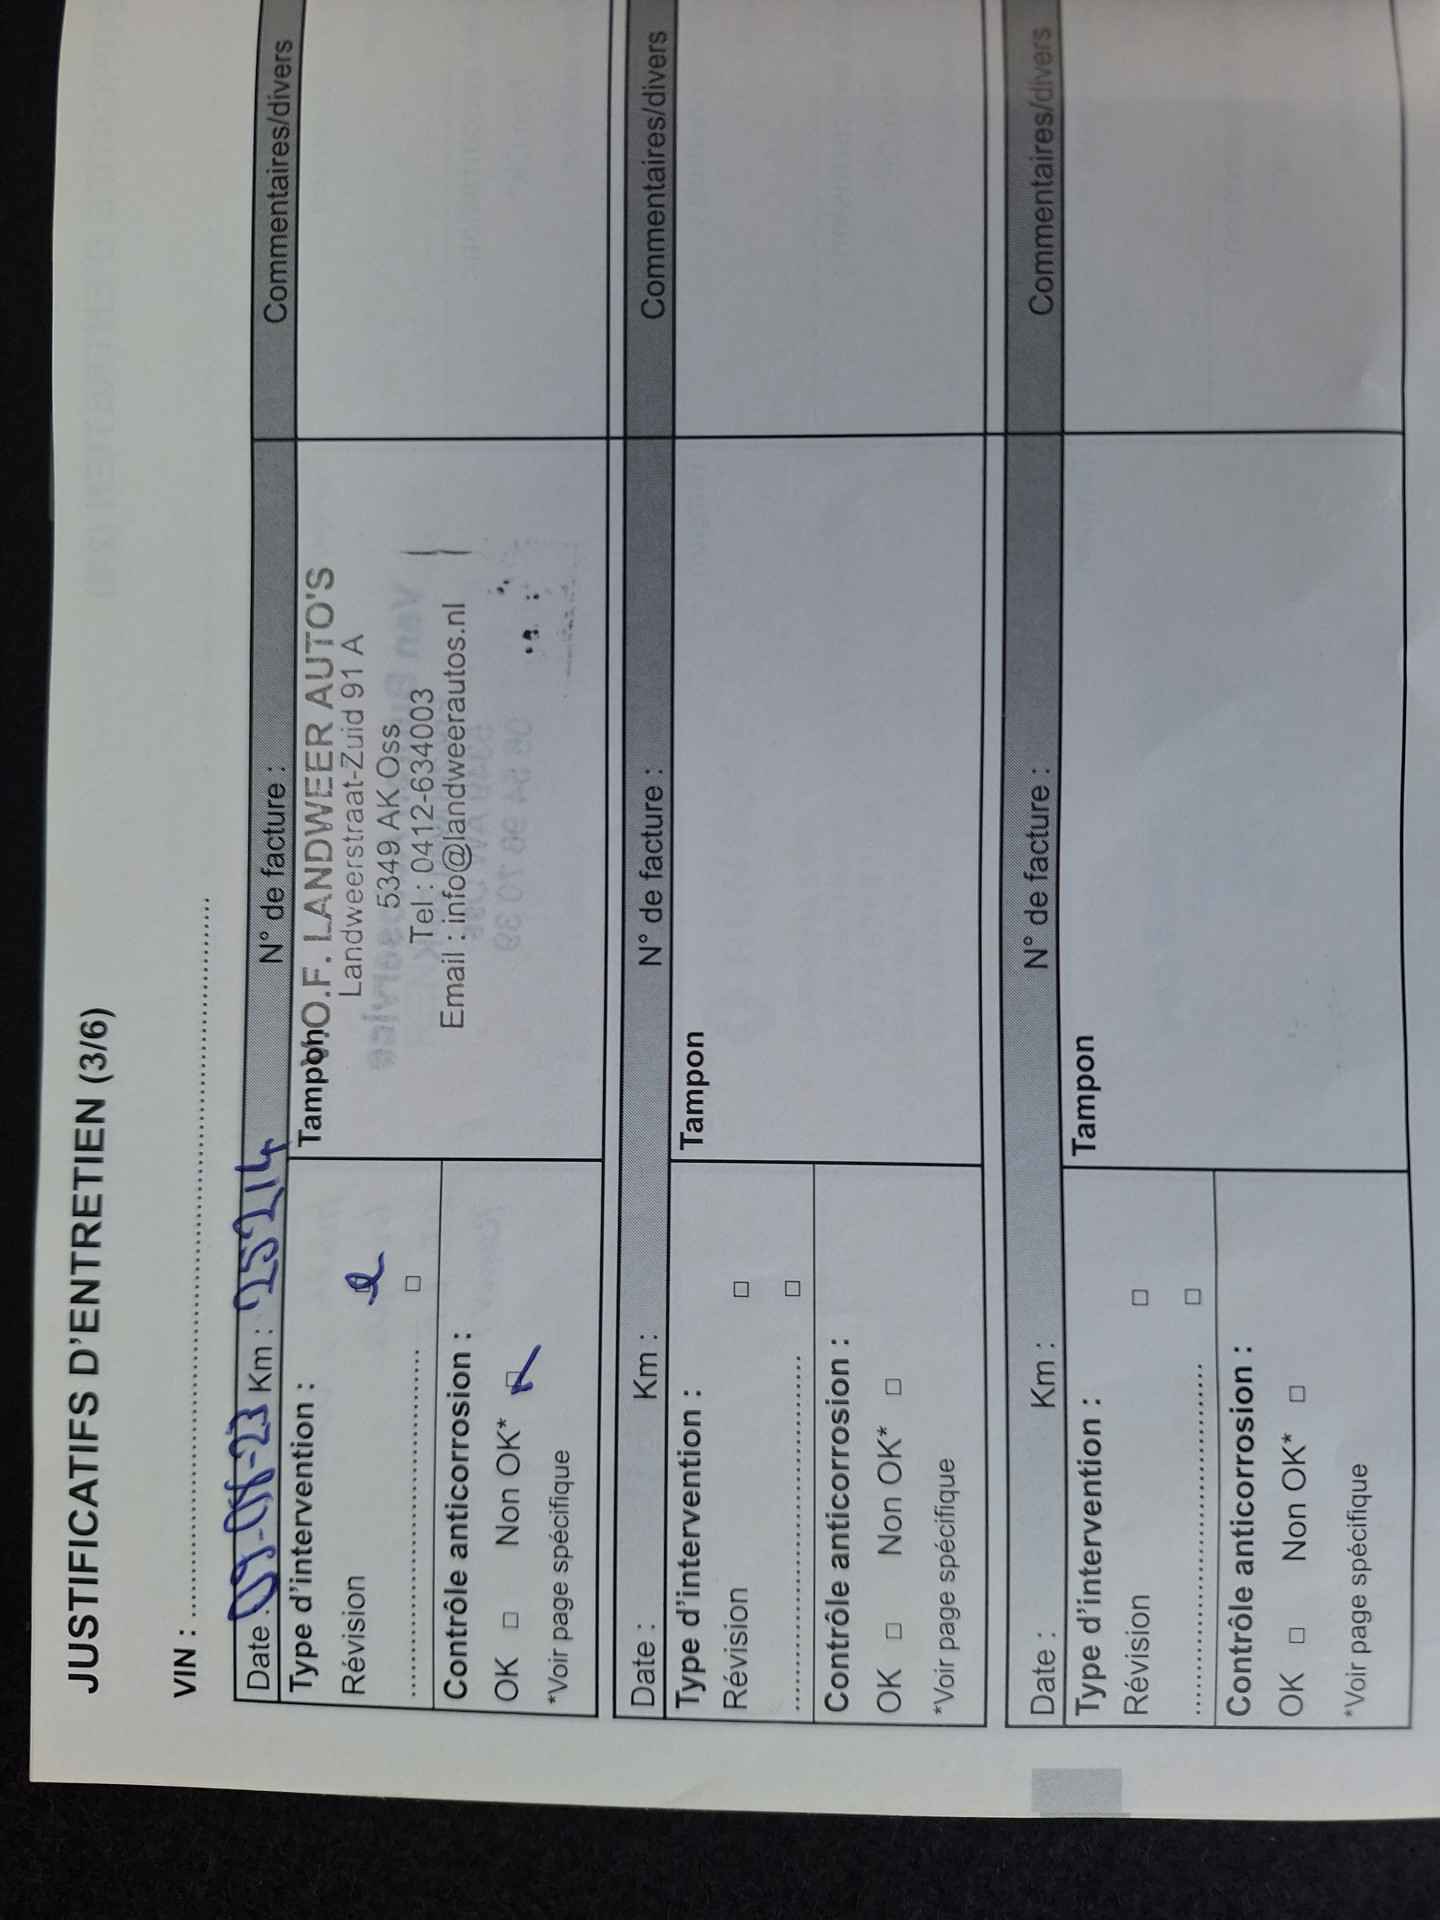 JUSTIFICATIFS D'ENTRETIEN (3/6)
VIN : ................................................................
Date : Km : 25214 N° de facture : Commentaires/divers
Type d'intervention :
Révision
................................ □
Contrôle anticorrosion :
OK □ Non OK*
*Voir page spécifique
Tampon
O.F. LANDWEER AUTO'S
Landweerstraat-Zuid 91 A
5349 AK Oss
Tel : 0412-634003
Email : info@landweerautos.nl
Date : Km : N° de facture : Commentaires/divers
Type d'intervention :
Révision □
................................ □
Contrôle anticorrosion :
OK □ Non OK* □
*Voir page spécifique
Tampon
Date : Km : N° de facture : Commentaires/divers
Type d'intervention :
Révision □
................................ □
Contrôle anticorrosion :
OK □ Non OK* □
*Voir page spécifique
Tampon